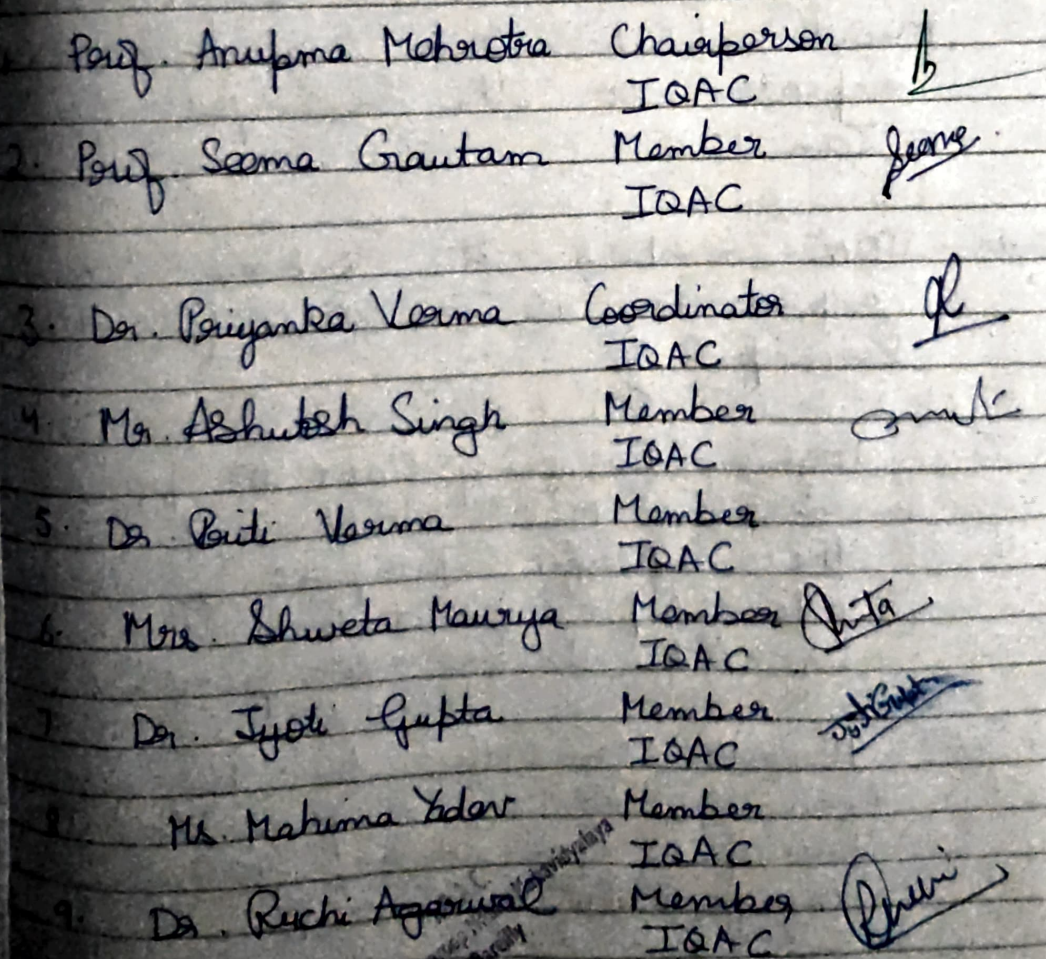 Prof. Anupma Mehrotra Chairperson
IQAC
2. Prof. Seema Gautam Member Seema
IQAC
3. Dr. Priyanka Verma Coordinator
IQAC
4. Mr. Ashutosh Singh Member
IQAC
5. Dr. Priti Verma Member
IQAC
6. Mrs. Shweta Maurya Member
IQAC
7. Dr. Jyoti Gupta Member Jyoti Gupta
IQAC
8. Ms. Mahima Yadav Member
IQAC
9. Dr. Ruchi Agarwal Member
IQAC